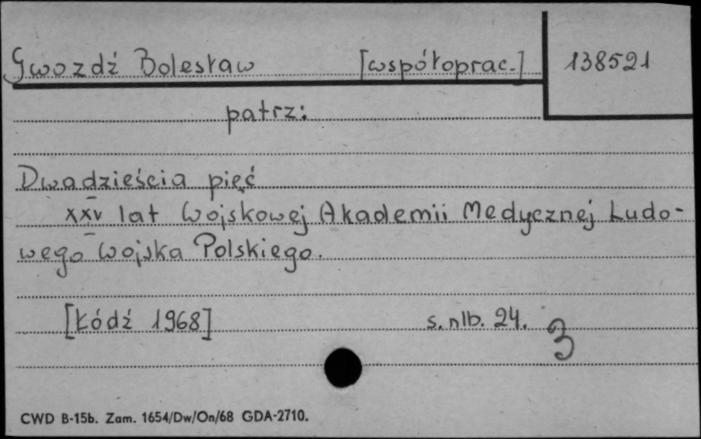 Gwozdź Bolesław [współoprac.] 138521
patrz:
Dwadzieścia pięć
XXV lat Wojskowej Akademii Medycznej Ludo-
wego Wojska Polskiego.
[Łódź 1968] s. nlb. 24. 3
CWD B-15b. Zam. 1654/Dw/On/68 GDA-2710.